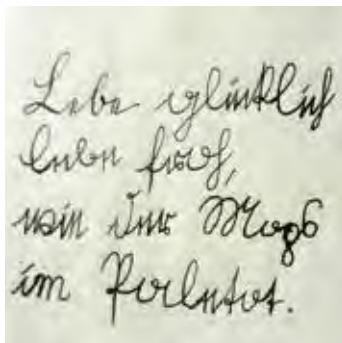 Lebe glücklich
lebe froh,
wie der Mops
im Paletot.